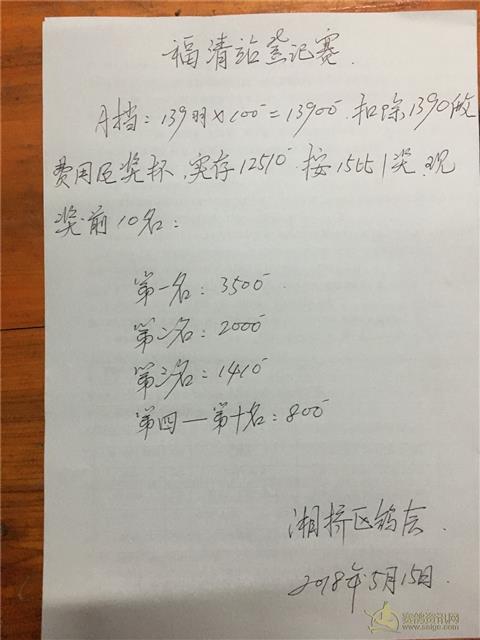 福清站登记赛.
A档：139羽×100=13900.扣除1390做
费用及奖杯,实存12510.按15比1奖.现
奖前10名：
第一名：3500
第二名：2000
第三名：1410
第四—第十名：800
湘桥区鸽会.
2018年5月15日.
赛鸽资讯网
www.saige.com